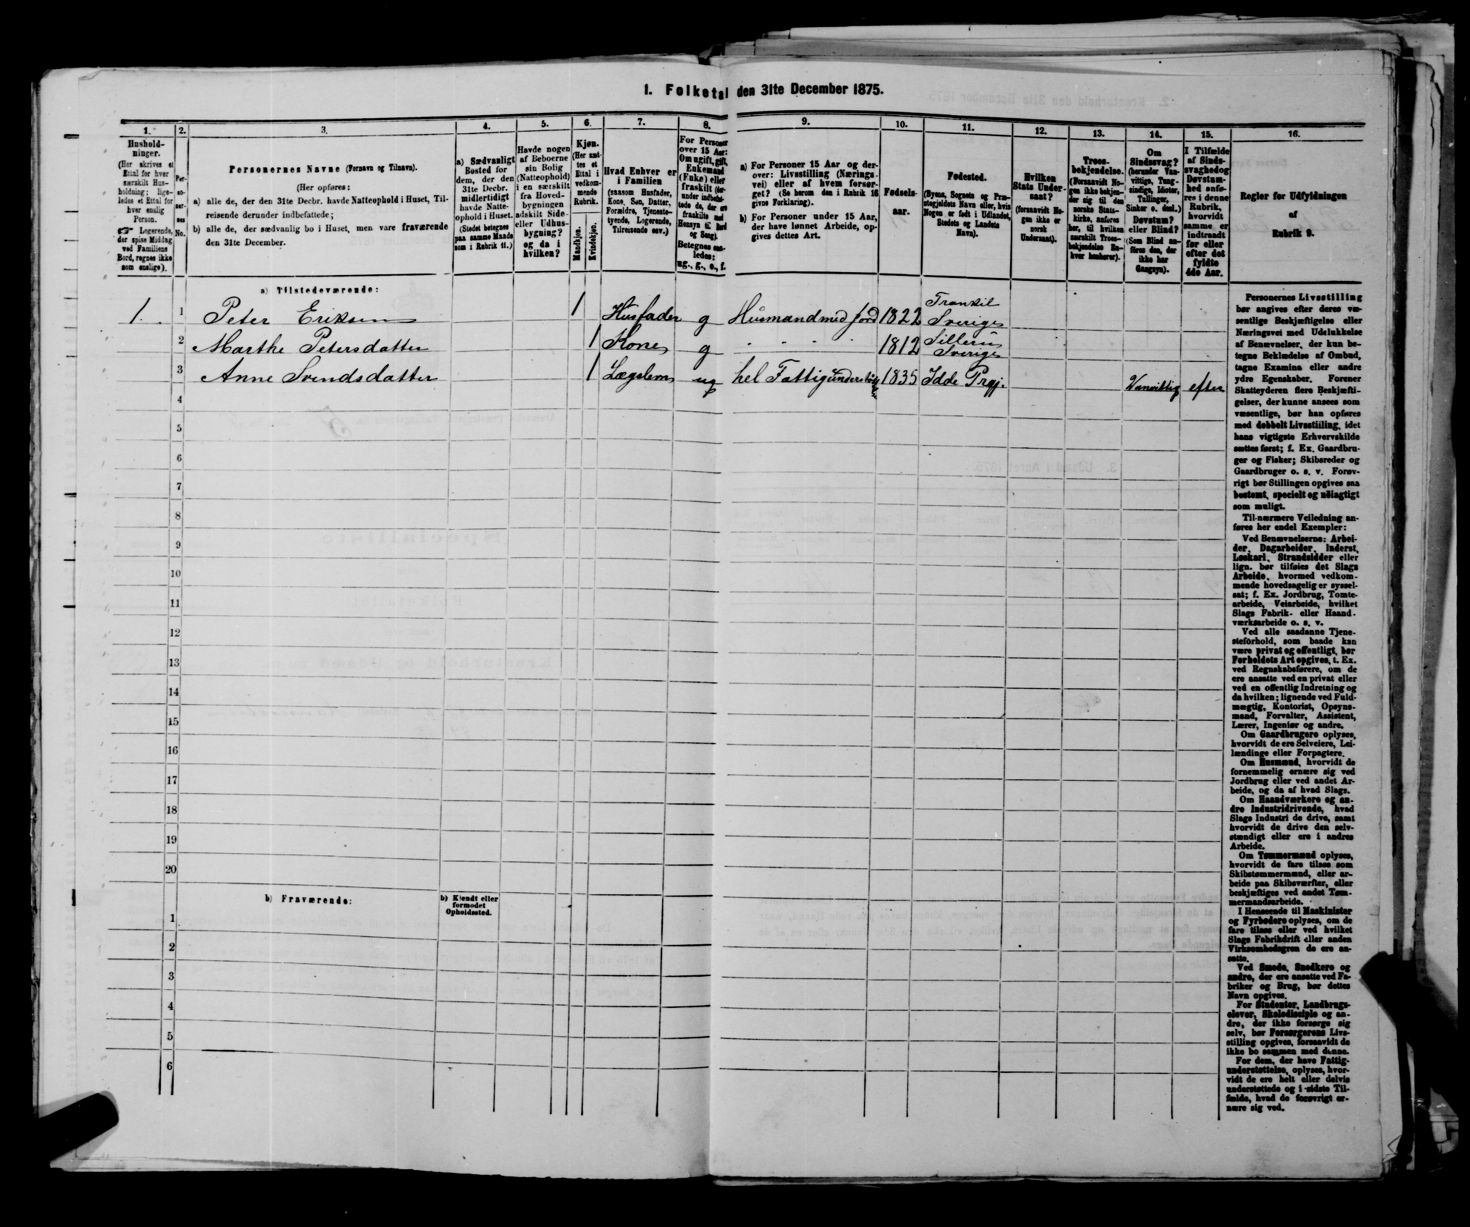 1. Folketal den 31te December 1875.
1.
Hushold-
ninger.
(Her skrives et
Ettal for hver
særskilt Hus-
holdning; lige-
ledes et Ettal for
hver enslig
Person.
Logerende,
der spise Middag
ved Familiens
Bord, regnes ikke
som enslige).
2.
Per-
so-
ner-
nes
No.
3.
Personernes Navne (Fornavn og Tilnavn).
(Her opføres:
a) alle de, der den 31te Decbr. havde Natteophold i Huset, Til-
reisende derunder indbefattede;
b) alle de, der sædvanlig bo i Huset, men vare fraværende
den 31te December.
4.
a) Sædvanligt
Bosted for
dem, der den
31te Decbr.
midlertidigt
havde Natte-
ophold i Huset.
(Stedet betegnes
paa samme Maade
som i Rubrik 11.)
5.
Havde nogen
af Beboerne
sin Bolig
(Natteophold)
i en særskilt
fra Hoved-
bygningen
adskilt Side-
eller Udhus-
bygning?
og da i
hvilken?
6.
Kjøn.
(Her sæt-
tes et
Ettal i
vedkom-
mende
Rubrik.
Mandkjøn.
Kvindekjøn.
7.
Hvad Enhver er
i Familien
(saasom Husfader,
Kone, Søn, Datter,
Forældre, Tjeneste-
tyende, Logerende,
Tilreisende osv.)
8.
For Personer
over 15 Aar:
Om ugift, gift,
Enkemand
(Enke) eller
fraskilt (der-
under indbefat-
tede de, der ere
fraskilte med
Hensyn til Bord
og Seng).
Betegnes saa-
ledes:
ug., g., e., f.
9.
a) For Personer 15 Aar og der-
over: Livsstilling (Nærings-
vei) eller af hvem forsør-
get? (Se herom den i Rubrik 16
givne Forklaring).
b) For Personer under 15 Aar,
der have lønnet Arbeide, op-
gives dettes Art.
10.
Fødsels-
aar.
11.
Fødested.
(Byens, Sognets og Præ-
stegjeldets Navn eller, hvis
Nogen er født i Udlandet,
Stedets og Landets
Navn).
12.
Hvilken
Stats Under-
saat?
(forsaavidt No-
gen ikke er
norsk
Undersaat).
13.
Troes-
bekjendelse.
(Forsaavidt No-
gen ikke bekjen-
der sig til den
norske Stats-
kirke, anføres
her, til hvilken
særskilt Troes-
bekjendelse En-
hver henhører).
14.
Om
Sindssvag?
(herunder Van-
vittige, Tung-
sindige, Idioter,
Tullinger,
Sinker o. desl.)
Døvstum?
eller Blind?
(Som Blind an-
føres den, der
ikke har
Gangsyn).
15.
I Tilfælde
af Sinds-
svaghed og
Døvstum-
hed anfø-
res i denne
Rubrik,
hvorvidt
samme er
indtraadt
før eller
efter det
fyldte
4de Aar.
16.
Regler for Udfyldningen
af
Rubrik 9.
a) Tilstedeværende:
1. 1 Peter Eriksen 1 Husfader g Husmand med jord 1822 Sverige
2 Marthe Petersdatter 1 Kone g " " " 1812 Sverige
3 Anne Svendsdatter 1 Lægslem ug hel Fattigunderstøttet 1835 Idde Prgj. Vanvittig efter
4
5
6
7
8
9
10
11
12
13
14
15
16
17
18
19
20
b) Fraværende:
b) Kjendt eller
formodet
Opholdssted.
1
2
3
4
5
6
Personernes Livsstilling
bør angives efter deres væ-
sentlige Beskjæftigelse eller
Næringsvei med Udelukkelse
af Benævnelser, der kun be-
tegne Beklædelse af Ombud,
tagne Examina eller andre
ydre Egenskaber. Forener
Skatteyderen flere Beskjæfti-
gelser, der kunne ansees som
væsentlige, bør han opføres
med dobbelt Livsstilling, idet
hans vigtigste Erhvervskilde
sættes først; f. Ex. Gaardbru-
ger og Fisker; Skibsreder og
Gaardbruger o. s. v. Forøv-
rigt bør Stillingen opgives saa
bestemt, specielt og nøiagtigt
som muligt.
Til nærmere Veiledning an-
føres her endel Exempler:
Ved Benævnelserne: Arbei-
der, Dagarbeider, Inderst,
Løskarl, Strandsidder eller
lign. bør tilføies det Slags
Arbeide, hvormed vedkom-
mende hovedsagelig er syssel-
sat; f. Ex. Jordbrug, Tomte-
arbeide, Veiarbeide, hvilket
Slags Fabrik- eller Haand-
værksarbeide o. s. v.
Ved alle saadanne Tjene-
steforhold, som baade kan
være privat og offentligt, bør
Forholdets Art opgives, t. Ex.
ved Regnskabsførere, om de
ere ansatte ved en privat eller
ved en offentlig Indretning og
da hvilken; lignende ved Fuld-
mægtig, Kontorist, Opsyns-
mand, Forvalter, Assistent,
Lærer, Ingeniør og andre.
Om Gaardbrugere oplyses,
hvorvidt de ere Selveiere, Lei-
lændinge eller Forpagtere.
Om Husmænd, hvorvidt de
fornemmelig ernære sig ved
Jordbrug eller ved andet Ar-
beide, og da af hvad Slags.
Om Haandværkere og an-
dre Industridrivende, hvad
Slags Industri de drive, samt
hvorvidt de drive den selv-
stændigt eller ere i andres
Arbeide.
Om Tømmermænd oplyses,
hvorvidt de fare tilsøs som
Skibstømmermænd, eller ar-
beide paa Skibsværfter, eller
beskjæftiges ved andet Tøm-
mermandsarbeide.
I Henseende til Maskinister
og Fyrbødere oplyses, om de
fare tilsøs eller ved hvilket
Slags Fabrikdrift eller anden
Virksomhedsgren de ere an-
satte.
Ved Smede, Snedkere og
andre, der ere ansatte ved Fa-
briker og Brug, bør dettes
Navn opgives.
For Studenter, Landbrugs-
elever, Skoledisciple og an-
dre, der ikke forsørge sig
selv, bør Forsørgerens Livs-
stilling opgives, forsaavidt de
ikke bo sammen med denne.
For dem, der have Fattig-
understøttelse, oplyses, hvor-
vidt de ere helt eller delvis
understøttede og i sidste Til-
fælde, hvad de forøvrigt er-
nære sig ved.